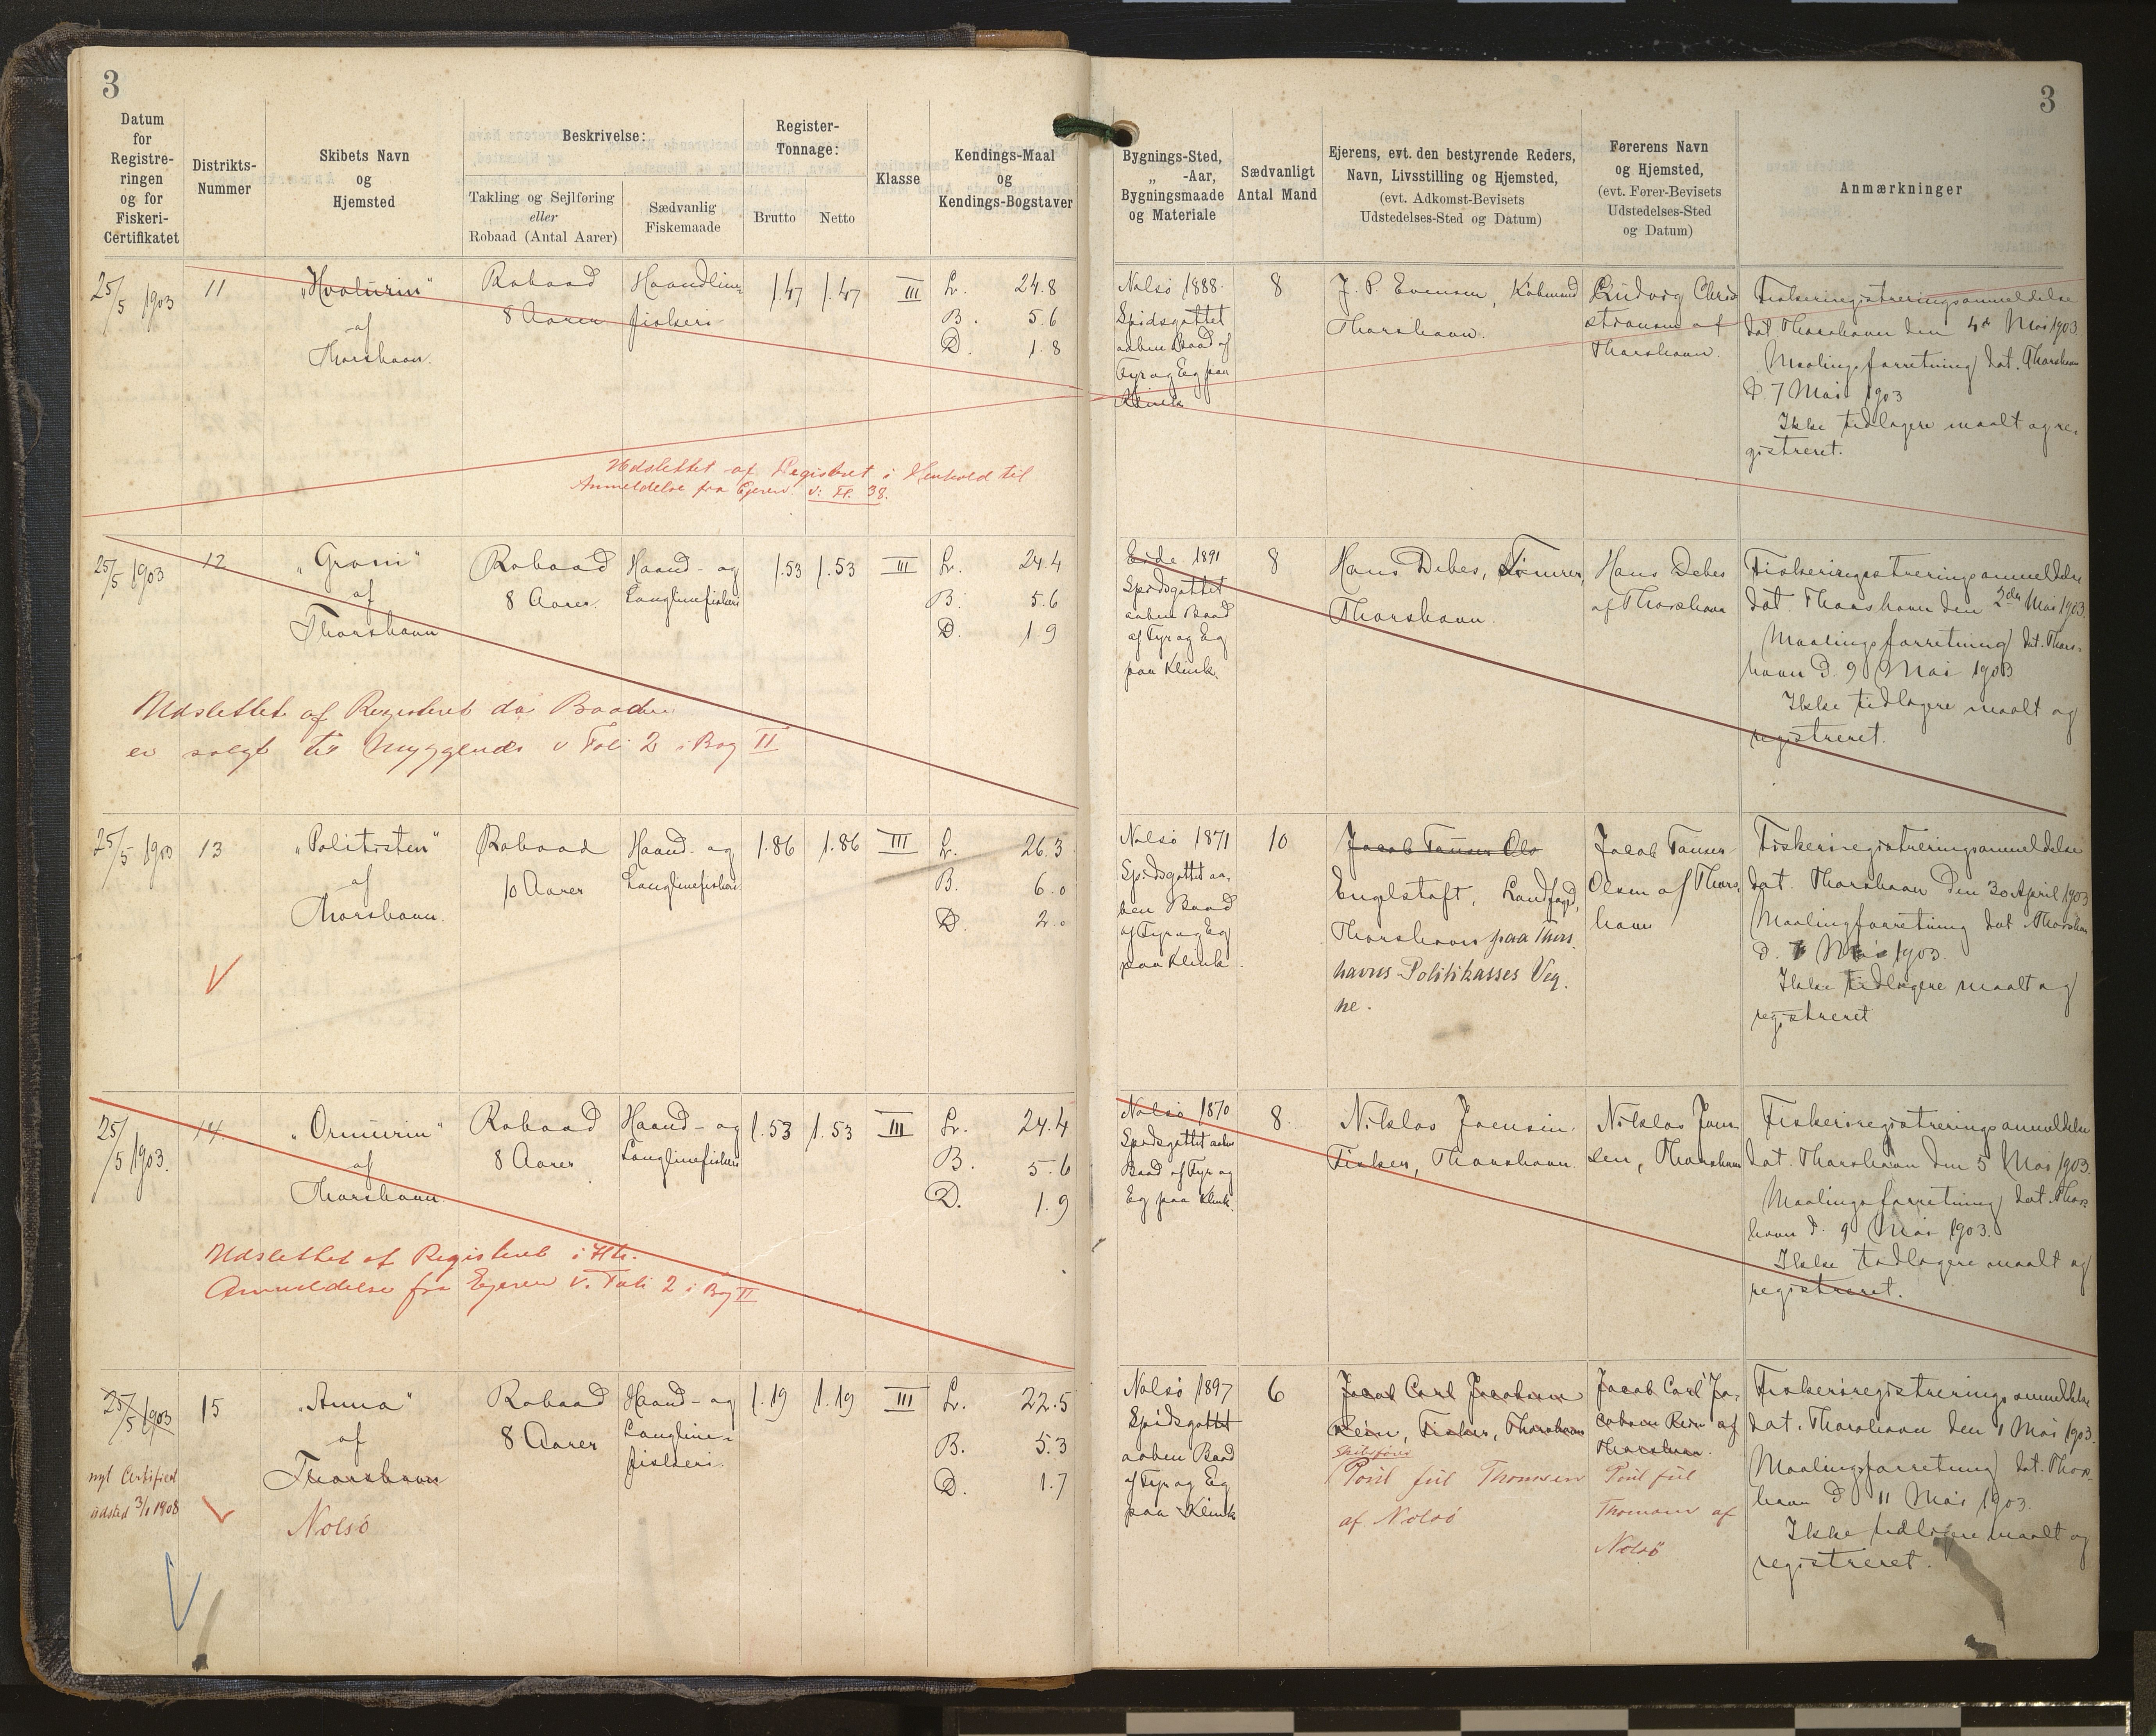 3
3
Datum
for
Registre-
ringen
og for
Fiskeri-
Certifikatet
Distrikts-
Nummer
Skibets Navn
og
Hjemsted
Beskrivelse:
Takling og Sejlføring
eller
Robaad (Antal Aarer)
Sædvanlig
Fiskemaade
Register-
Tonnage:
Brutto
Netto
Klasse
Kendings-Maal
og
Kendings-Bogstaver
Bygnings-Sted,
„ -Aar,
Bygningsmaade
og Materiale
Sædvanligt
Antal Mand
Ejerens, evt. den bestyrende Reders,
Navn, Livsstilling og Hjemsted,
(evt. Adkomst-Bevisets
Udstedelses-Sted og Datum)
Førerens Navn
og Hjemsted,
(evt. Fører-Bevisets
Udstedelses-Sted
og Datum)
Anmærkninger
25/5 1903
11
„Hvalurin"
af
Thorshavn.
Robaad
8 Aarer
Haandline
fiskeri
1.47
1.47
III
L. 24.8
B. 5.6
D. 1.8
Nolsö 1888.
Spidsgattet
aaben Baad af
Fyr og Eg paa
Klink
8
J. P. Evensen, Købmand
Thorshavn.
Ludvig Chris
stiansen af
Thorshavn.
Fiskeriregistreringsanmeldelse
dat. Thorshavn den 4de Mai 1903
Maalingsforretning dat. Thorshavn
D. 7 Mai 1903
Ikke tidlagere maalt og re-
gistreret.
Udslettet af Registret i Henhold til
Anmeldelse fra Ejeren v. Fl. 38.
25/5 1903
12
„Grani"
af
Thorshavn
Robaad
8 Aarer.
Haand- og
Langlinefiskeri
1.53
1.53
III
L. 24.4
B. 5.6
D. 1.9
Eide 1891
Spidsgattet
aaben Baad
af Fyr og Eg
paa Klink.
8
Hans Debes, Tömrer,
Thorshavn.
Hans Debes
af Thorshavn
Fiskeriregistreringsanmeldelse
dat. Thorshavn den 2den Mai 1903.
Maalingsforretning dat. Thors-
havn D. 9 Mai 1903
Ikke tidlagere maalt og
registreret.
Udslettet af Registeret da Baaden
er solgt til Myggenæs v Foli 2 i Bog II
25/5 1903
13
„Politisten"
af
Thorshavn.
Robaad
10 Aarer
Haand- og
Langlinefiskeri
1.86
1.86
III
L. 26.3
B. 6.0
D. 2.0
Nolsö 1871
Spidsgattet aa-
ben Baad
af Fyr og Eg
paa Klink.
10
Jacob Tausen Ols
Engelstoft, Landfoged,
Thorshavn paa Thors-
havns Politikasses Veg-
ne.
Jacob Tausen
Olsen af Thors
havn
Fiskeriregistreringsanmeldelse
dat. Thorshavn den 30 April 1903
Maalingforretning dat. Thorshavn
D. 7 Mai 1903.
Ikke tidlagere maalt og
registreret
25/5 1903.
14
„Ormurin"
af
Thorshavn
Robaad
8 Aarer
Haand- og
Langlinefiskeri
1.53
1.53
III
L. 24.4
B. 5.6
D. 1.9
Nolsö 1870
Spidsgattet aaben
Baad af Fyr og
Eg paa Klink.
8.
Niklas Joensen.
Fisker, Thorshavn.
Niklas Joen
sen, Thorshavn
Fiskeriregistreringsanmeldelse
dat. Thorshavn den 5 Mai 1903.
Maalingsforretning dat. Thors-
havn d. 9 Mai 1903.
Ikke tidlagere maalt og
registreret.
Udslettet af Registeret i Hh.
Anmeldelse fra Ejeren v. Foli 2 i Bog II
25/5 1903
15
„Anna"
af
Thorshavn
Nolsö
nyt Certifikat
udsted 3/1 1908
Robaad
8 Aarer
Haand- og
Langline-
fiskeri.
1.19
1.19
III
L. 22.5
B. 5.3
D. 1.7
Nolsö 1897
Spidsgattet
aaben Baad
af Fyr og Eg
paa Klink
6
Jacob Carl Jacobsen
Rein, Fisker, Thorshavn
Skibsfører
Poul Juul Thomsen
af Nolsö
Jacob Carl Ja-
cobsen Rein af
Thorshavn.
Poul Juul
Thomsen af
Nolsö
Fiskeriregistreringsanmeldelse
dat. Thorshavn den 1 Mai 1903.
Maalingsforretning dat. Thors-
havn D. 11 Mai 1903.
Ikke tidlagere maalt og
registreret.